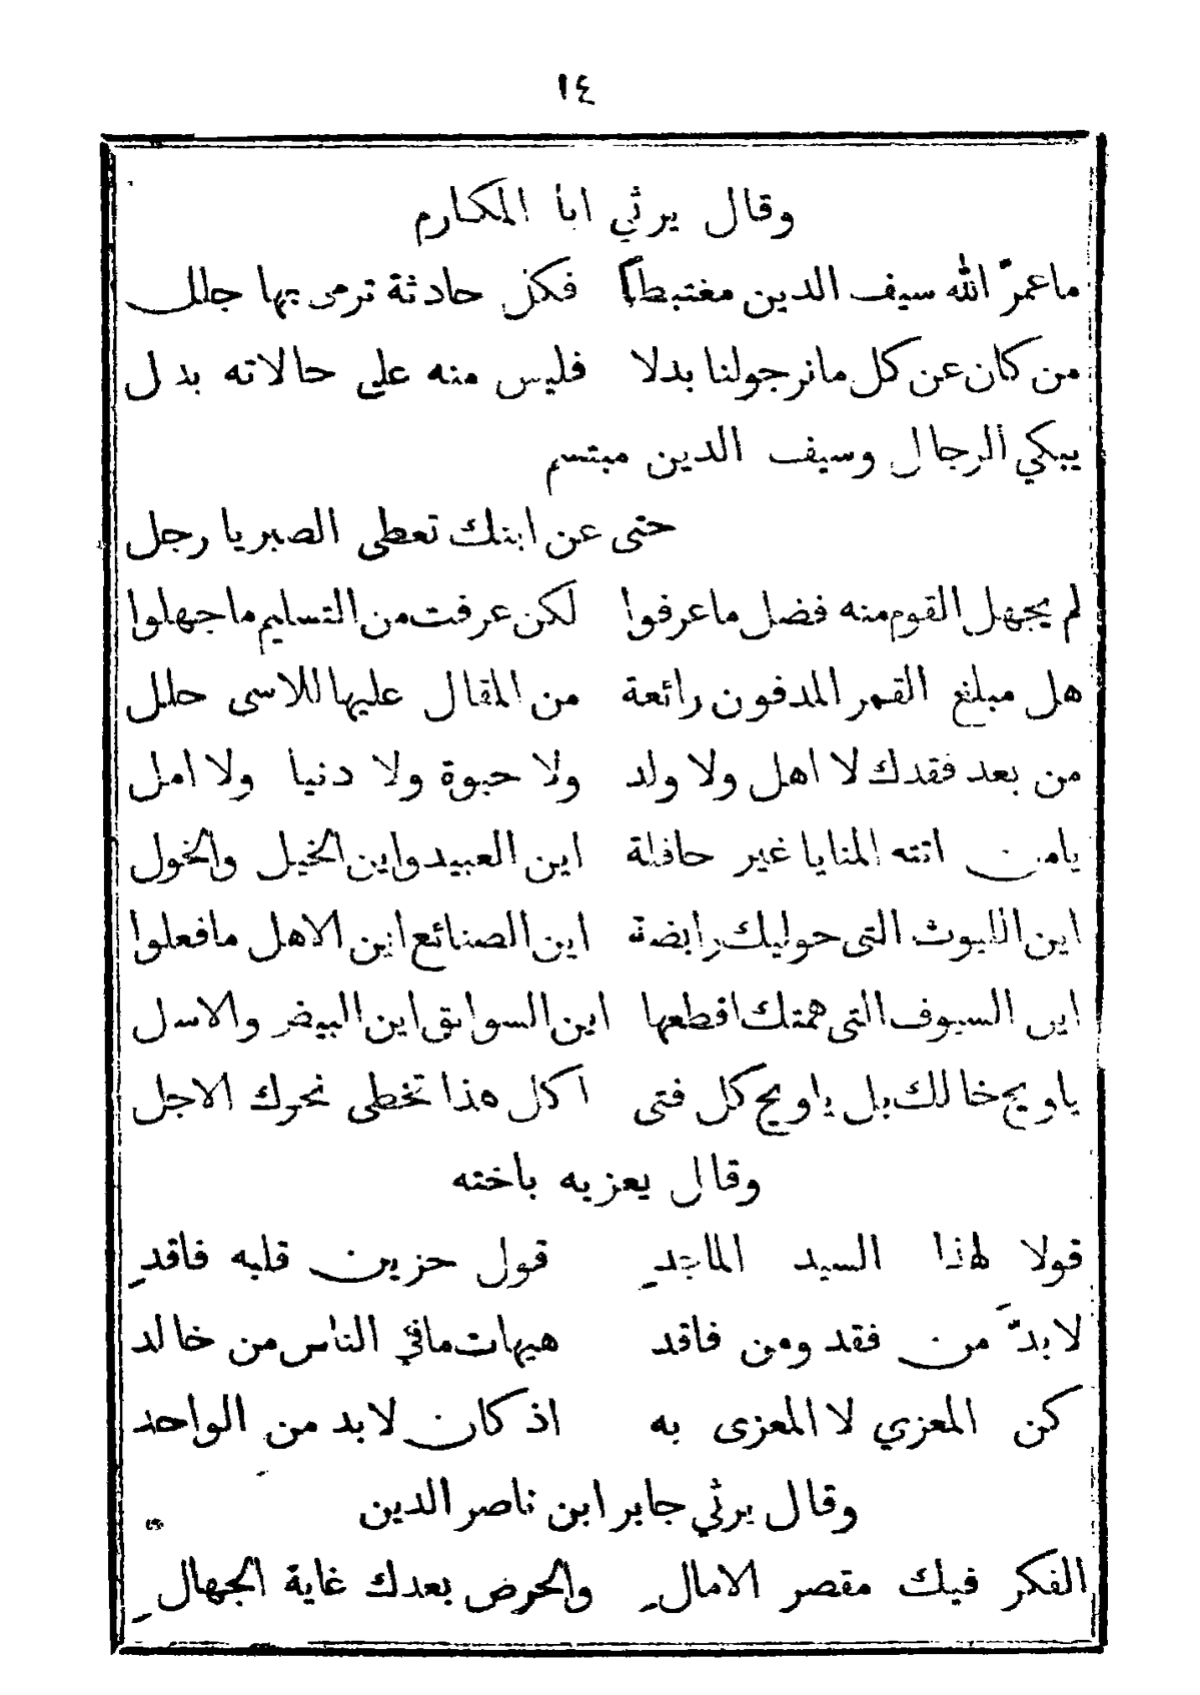 ١٤
وقال يرثي ابا المكارم
ما عمرّ الله سيف الدين مغتبطاً فكل حادثة ترمى بها جلل
من كان عن كل ما نرجو لنا بدلا فليس منه على حالاته بدل
يبكي الرجال وسيف الدين مبتسم
حتى عن ابنك تعطى الصبر يا رجل
لم يجهل القوم منه فضل ما عرفوا لكن عرفت من التسليم ما جهلوا
هل مبلغ القمر المدفون رائعة من المقال عليها للاسى حلل
من بعد فقدك لا اهل ولا ولد ولا حيوة ولا دنيا ولا امل
يامن اتته المنايا غير حافلة اين العبيد واين الخيل والخول
اين الليوث التى حوليك رابضة اين الصنائع اين الاهل ما فعلوا
اين السيوف التى همتك اقطعها اين السوابق اين البيض والاسل
ياويح خالك بل ياويح كل فتى اكل هذا تخطى نحوك الاجل
وقال يعزيه باخته
قولا لهذا السيد الماجدِ قول حزين قلبه فاقدِ
لا بدَّ من فقد ومن فاقد هيهات ما في الناس من خالد
كن المعزي لا المعزى به اذ كان لا بد من الواحد
وقال يرثي جابر ابن ناصر الدين
الفكر فيك مقصر الامالِ والحرض بعدك غاية الجهالِ